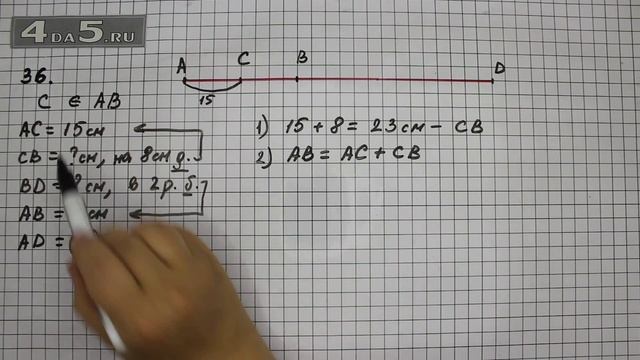 4DA5.RU
36.
C ∈ AB
A C B D
15
AC = 15 см
CB = ? см, на 8 см д.
BD = ? см, в 2 р. б.
AB = см
AD =
1) 15 + 8 = 23 см - CB
2) AB = AC + CB